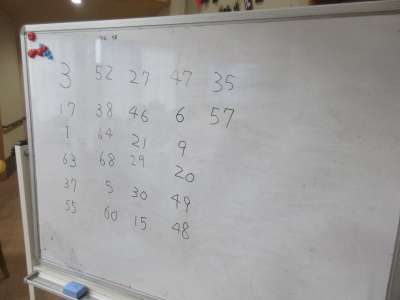 3 52 27 47 35
17 38 46 6 57
1 64 21 9
63 68 29 20
37 5 30 49
55 60 15 48